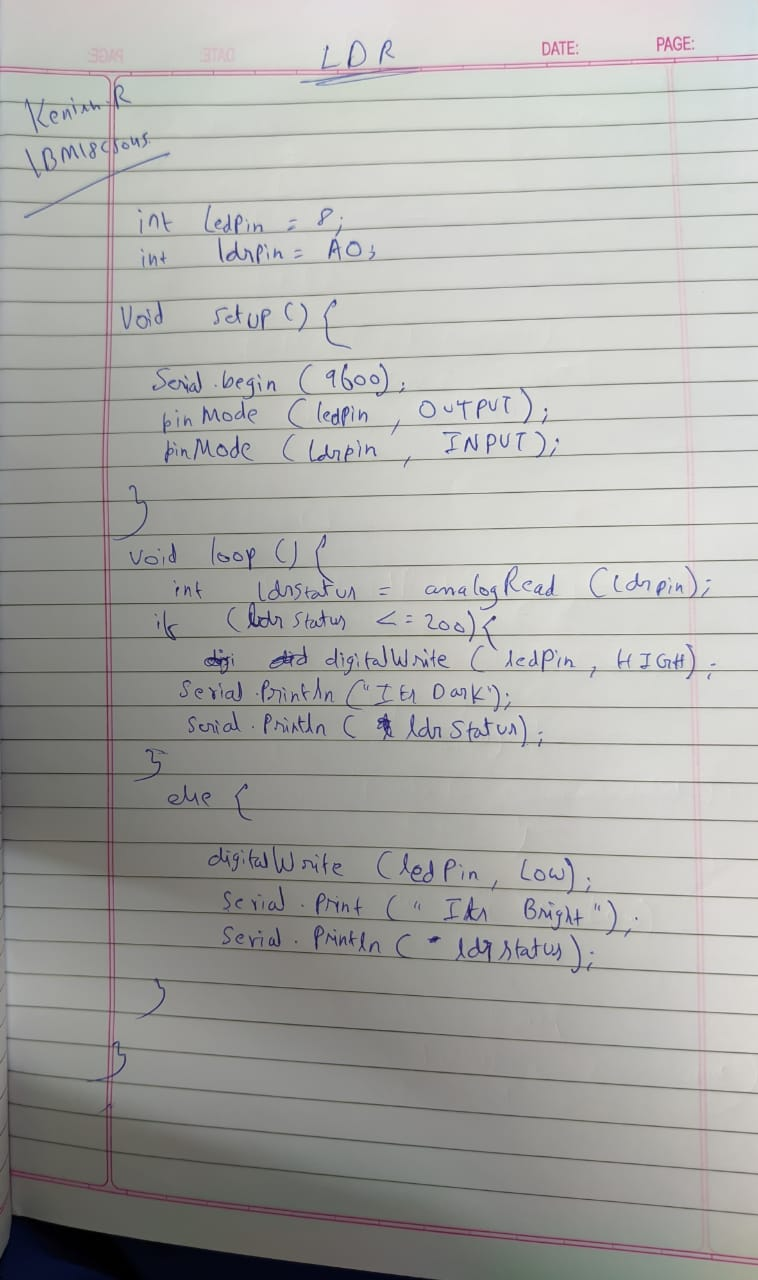 LDR
DATE:
PAGE:
R
int ledpin = 8;
int ldrpin = A0;
Void setup () {
Serial.begin (9600);
pinMode (ledpin, OUTPUT);
pinMode (ldrpin, INPUT);
}
void loop () {
int ldrstatus = analogRead (ldrpin);
if (ldr status <= 200) {
digitalWrite (ledpin, HIGH);
Serial.Println ("Its Dark");
Serial.Println (ldr status);
}
else {
digitalWrite (led pin, Low);
Serial.Print ("Its Bright");
Serial.Println (ldr status);
}
}